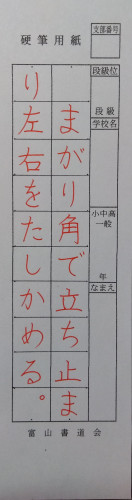 硬筆用紙
支部番号
段級位
段級
学校名
小中高
一般
年
なまえ
まがり角で立ち止ま
り左右をたしかめる。
富山書道会